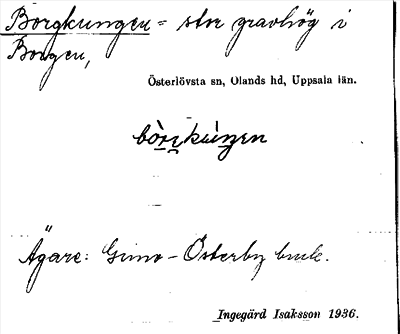 Borgkungen = stor gravhög i
Borgen,
Österlövsta sn, Olands hd, Uppsala län.
bòrjkúŋen
Ägare: Gimo-Österby bruk.
Ingegärd Isaksson 1936.